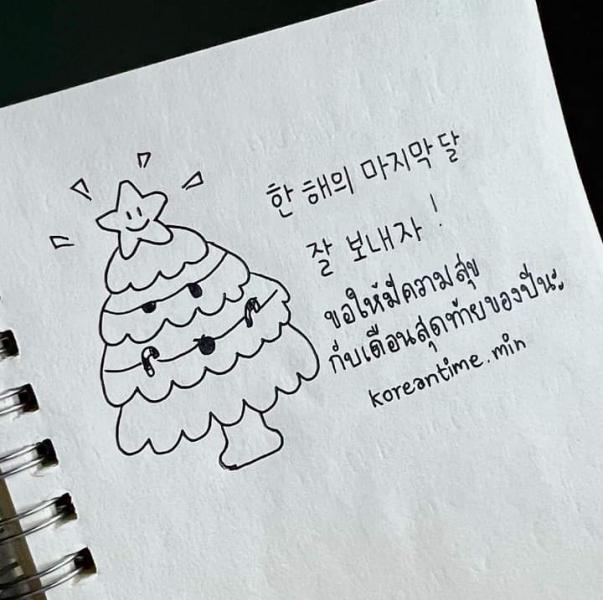 한 해의 마지막 달
잘 보내자!
ขอให้มีความสุข
กับเดือนสุดท้ายของปีนะ
koreantime.min